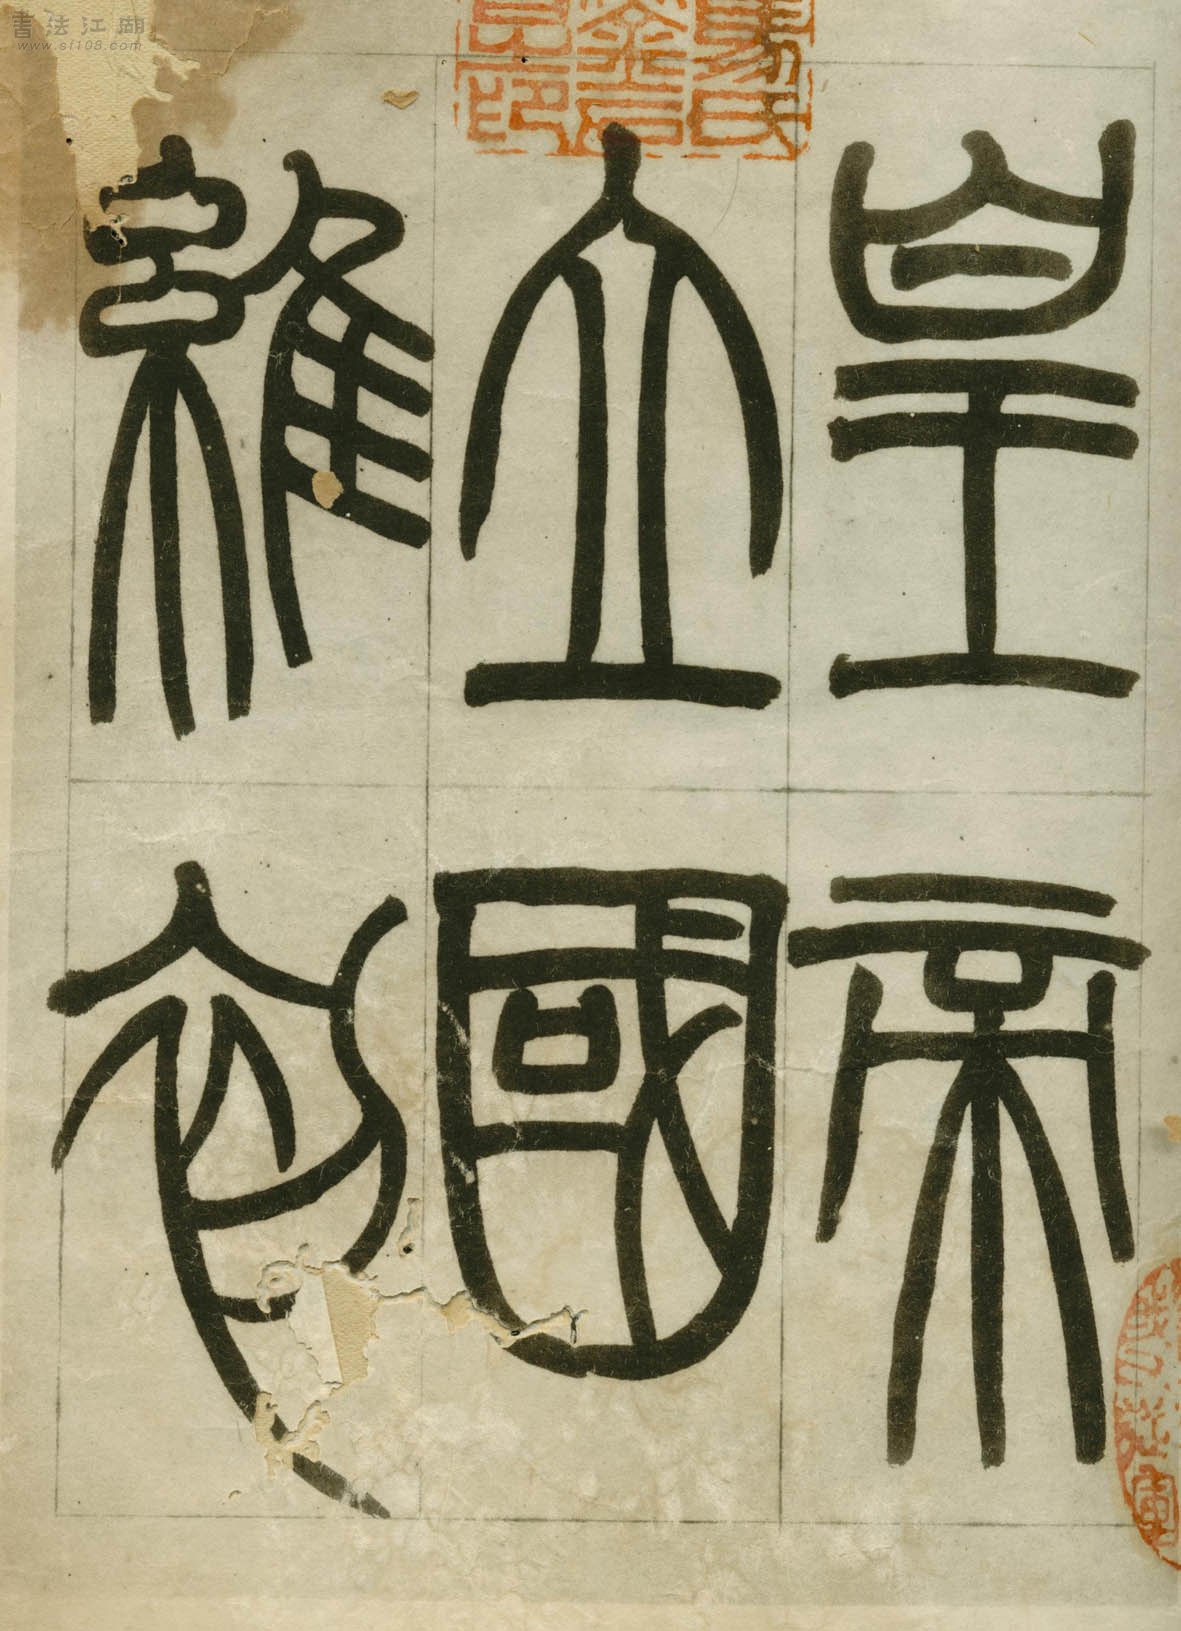 皇帝
立國
維初
書法江湖
www.sf108.com